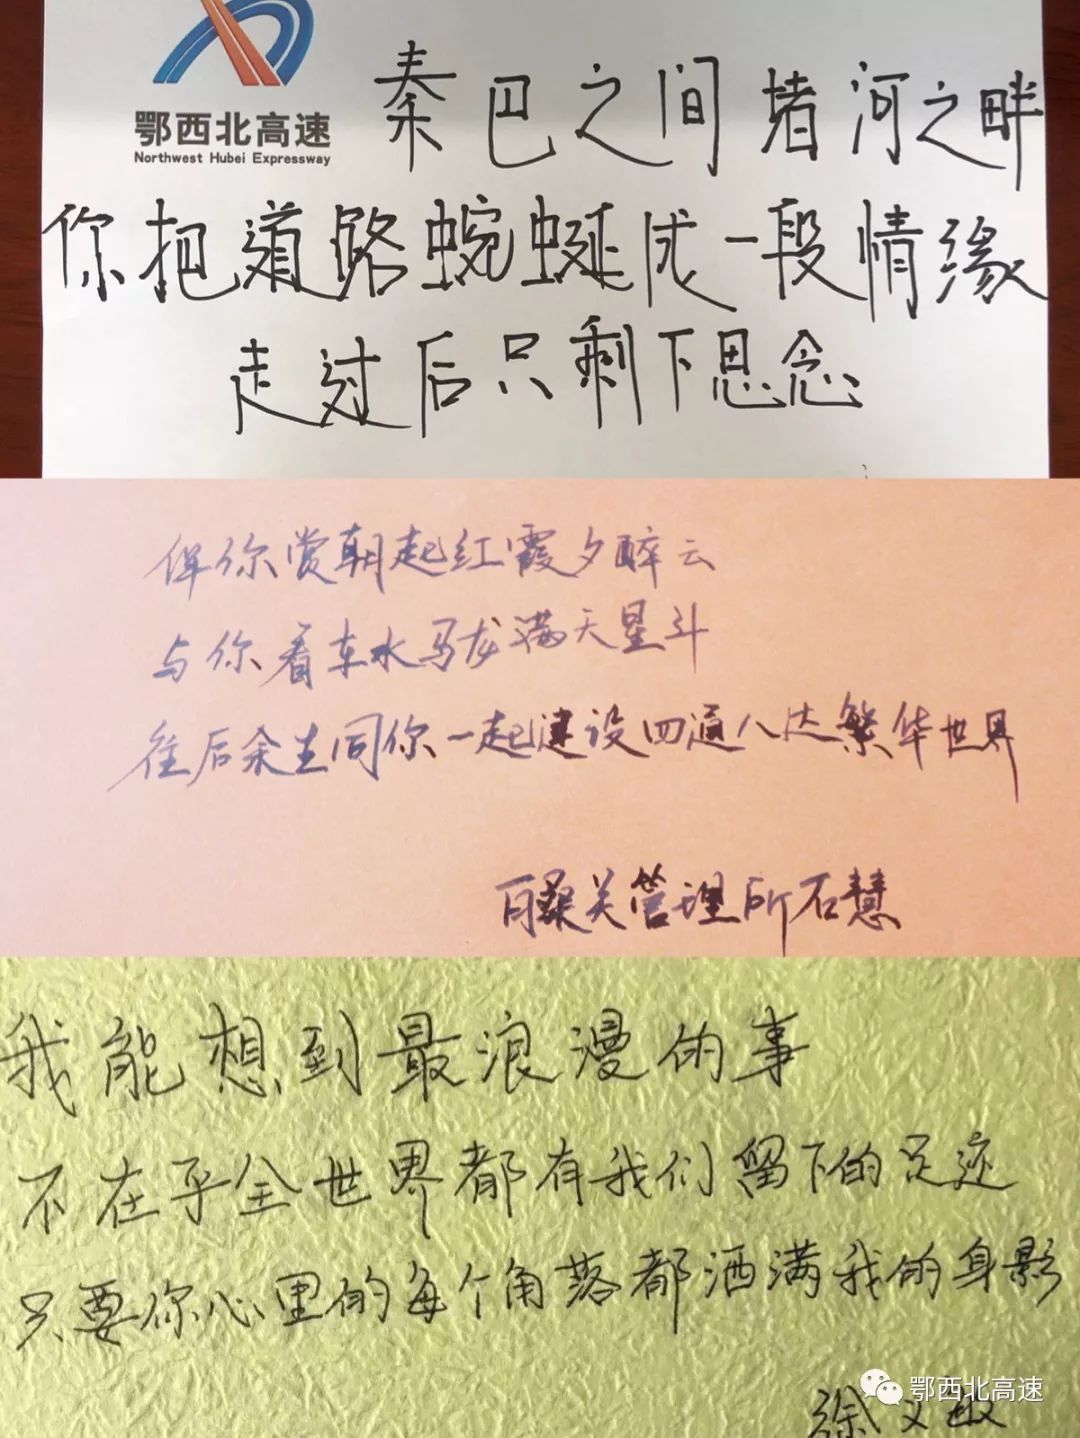 鄂西北高速
Northwest Hubei Expressway
秦巴之间 堵河之畔
你把道路蜿蜒成一段情缘
走过后只剩下思念
伴你赏朝起红霞夕醉云
与你看车水马龙满天星斗
往后余生同你一起建设四通八达繁华世界
白桑关管理所石慧
我能想到最浪漫的事
不在乎全世界都有我们留下的足迹
只要你心里的每个角落都洒满我的身影
徐文敏
鄂西北高速